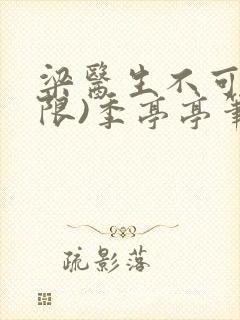 梁醫生不可
限)季亭亭筆
疏影落